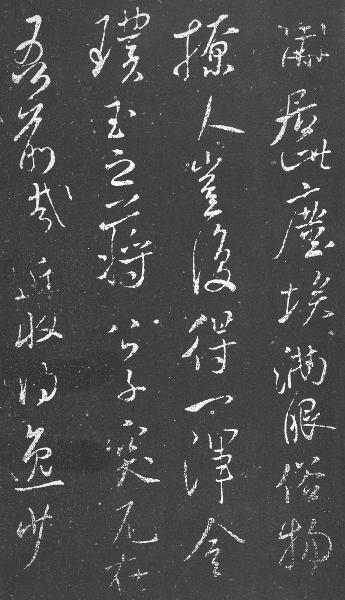 居此塵埃滿眼俗物
撩人豈復得一渾金
璞玉之將公子突兀在
吾前哉 近收得逸少